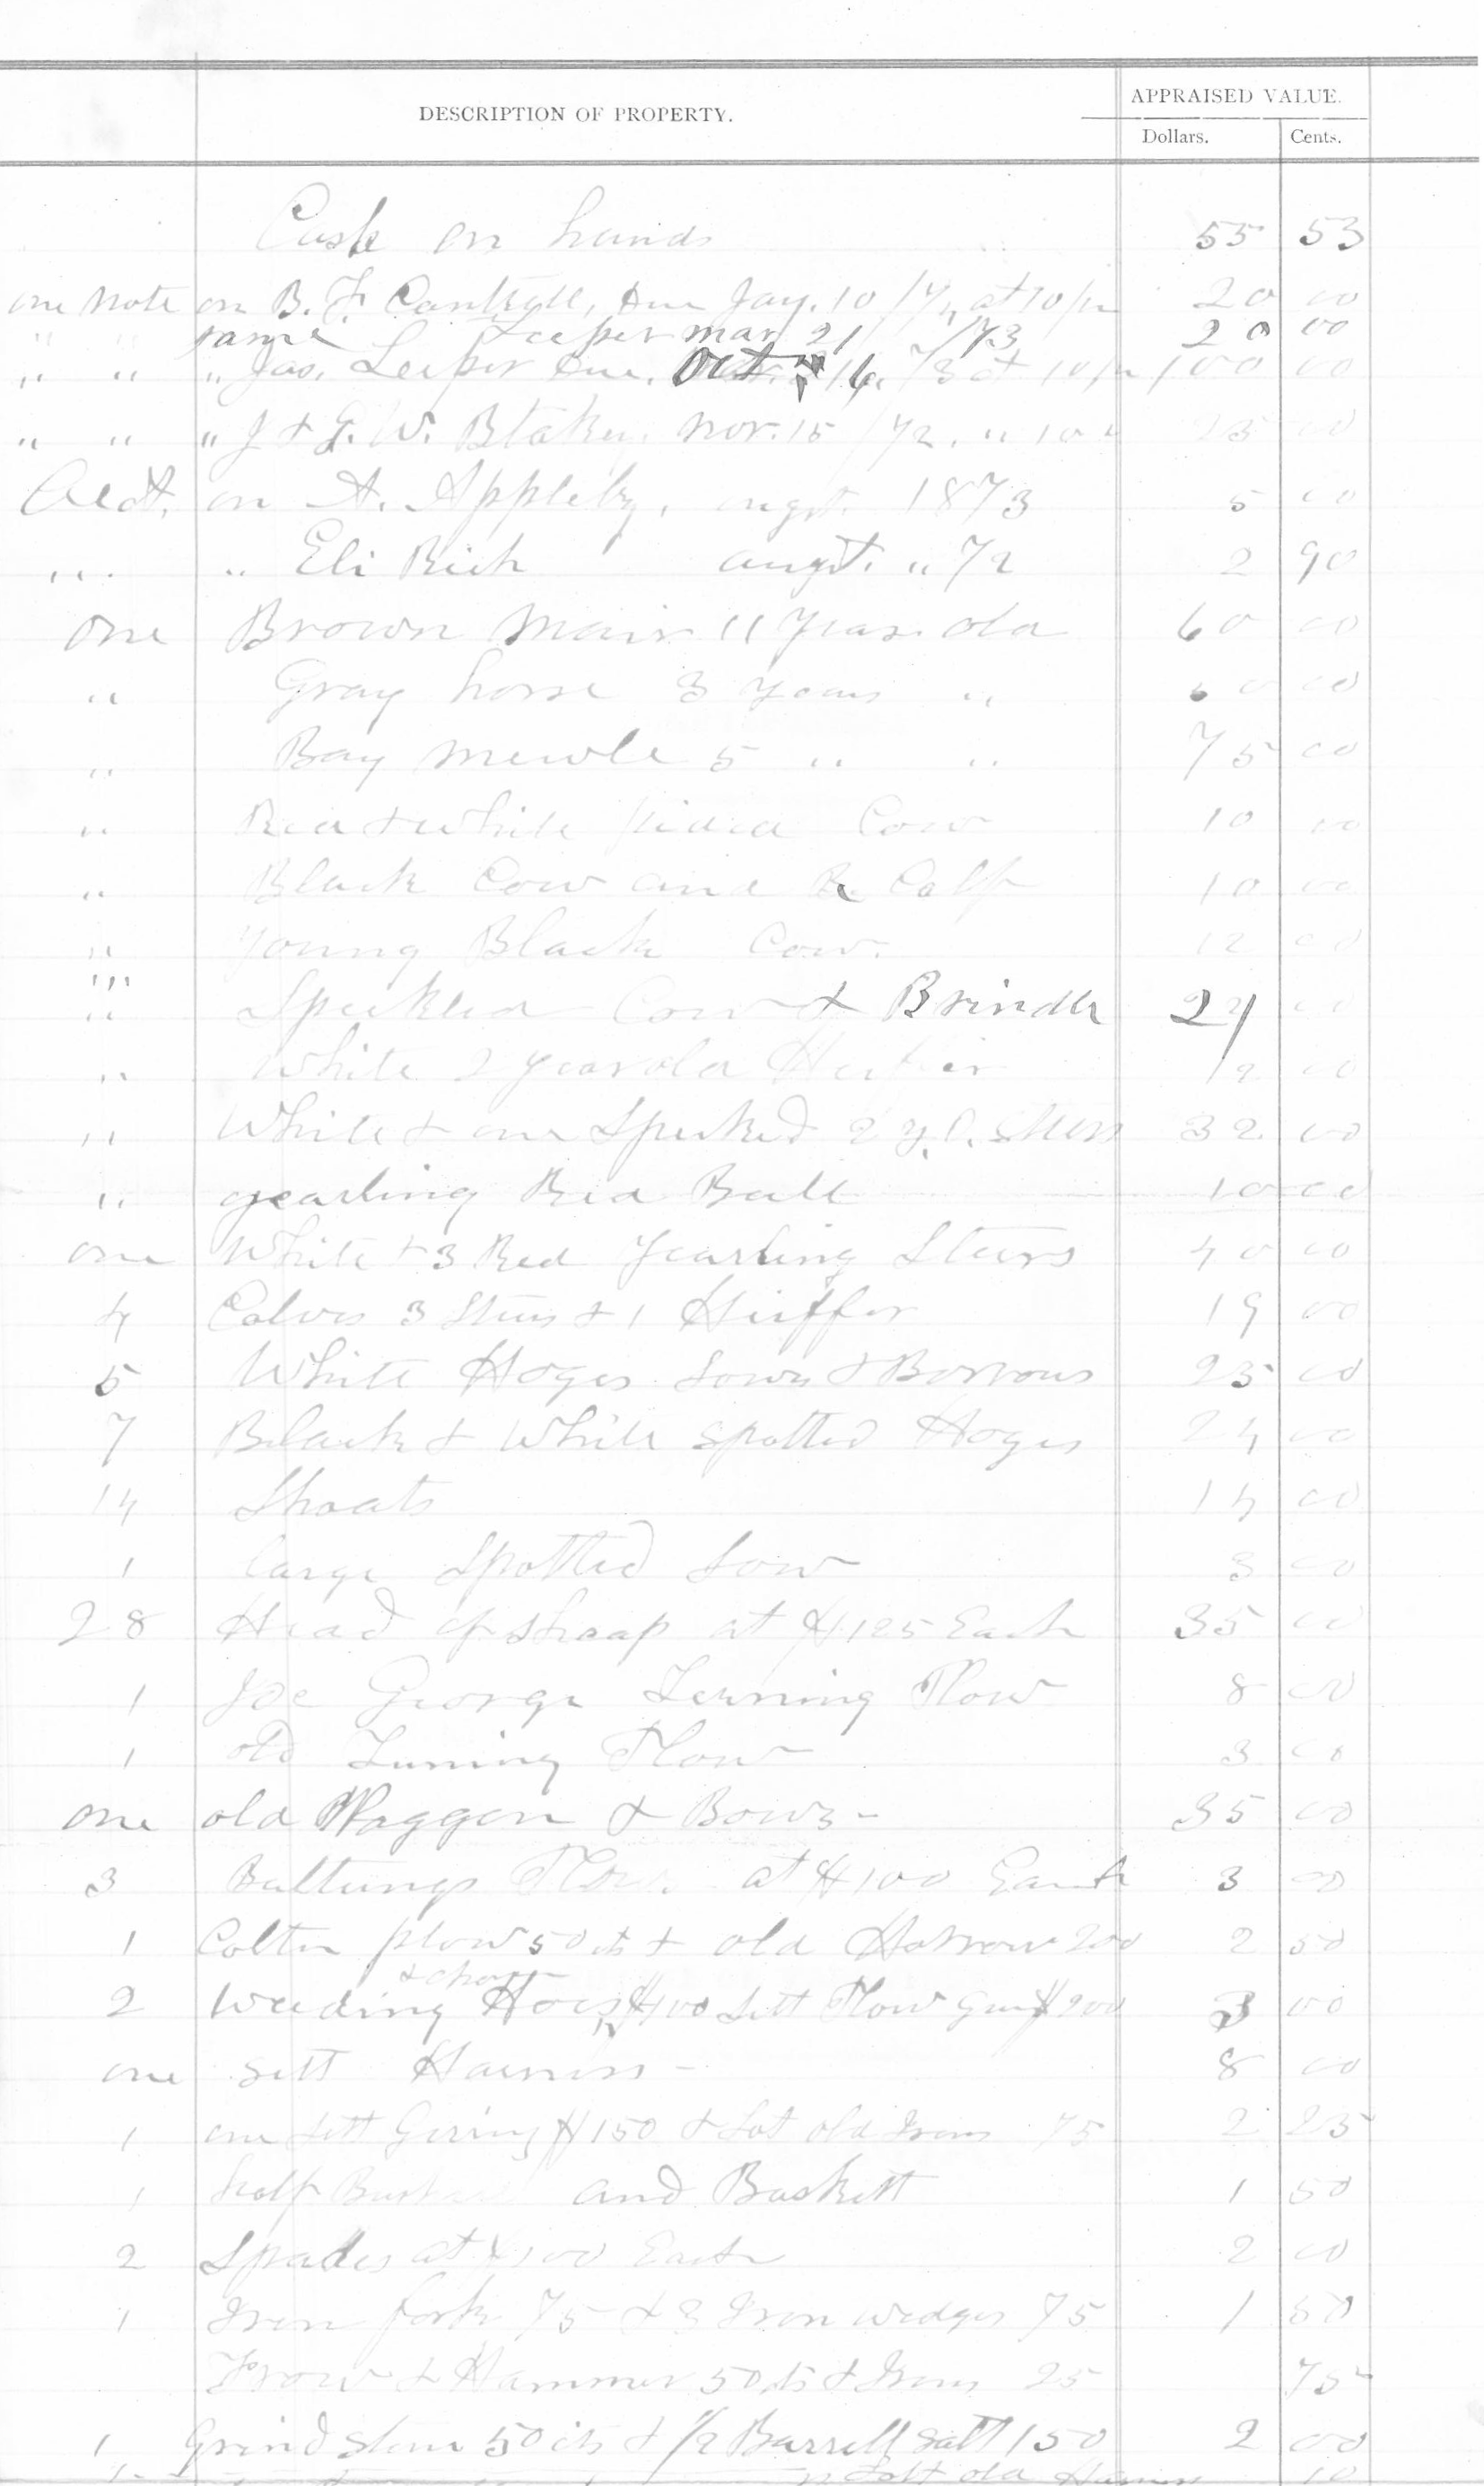 DESCRIPTION OF PROPERTY. APPRAISED VALUE.
Dollars. Cents.
Cash on hands 55 53
one note on B. F. Cantrell, due Jay. 10 /74 at 10/ 20 00
" " same Mar 21 /73 20 00
" " " Jas. Leeper due Oct 16 /73 at 10 100 00
" " " J & G. W. Blakey. Nov. 15 /72. " 10 " 25 00
Acct. on A. Appleby, augst. 1873 5 00
" " Eli Rich augst. " 72 2 90
One Brown Mair 11 years old 60 00
" Gray horse 3 years " 60 00
" Bay Mewle 5 " " 75 00
" Red & White pided Cow 10 00
" Black Cow and Calf 10 00
" Young Black Cow. 12 00
" Speckled Cow & Brindle 24 00
" White 2 year old Heifer 12 00
" White & one Specked 2 y. o. Steers 32 00
" yearling Red Bull 10 00
one White & 3 Red Yearling Steers 40 00
4 Calves 3 Steers & 1 Heiffer 19 00
5 White Hoges Sows & Borrows 25 00
7 Black & White spotted Hoges 24 00
14 Shoats 14 00
1 large Spotted Sow 3 00
28 Head of sheap at $1 25 Each 35 00
1 Joe George Turning Plow 8 00
1 old Turning Plow 3 00
One old Waggon & Bows - 35 00
3 Plows at $1 00 Each 3 00
1 Colter plow 50 cts & old Harrow 2 00 2 50
& chop
2 Weeding Hoes $1 00 Sett Plow Gears $2 00 3 00
one sett Harness - 8 00
1 one Sett Gering $1 50 & Lot old Irons 75 2 25
1 half Bushel and Baskett 1 50
2 Spades at $1 00 Each 2 00
1 Iron fork 75 & 3 Iron wedges 75 1 50
Frow & Hammer 50 cts & Irons 25 75
1 Grind stone 50 cts & 1/2 Barrell salt 1 50 2 00